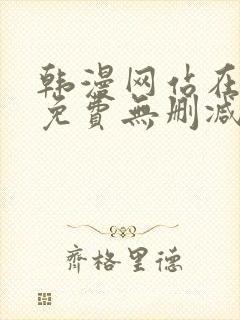 韩漫网站在
免費無删减
齊格里德